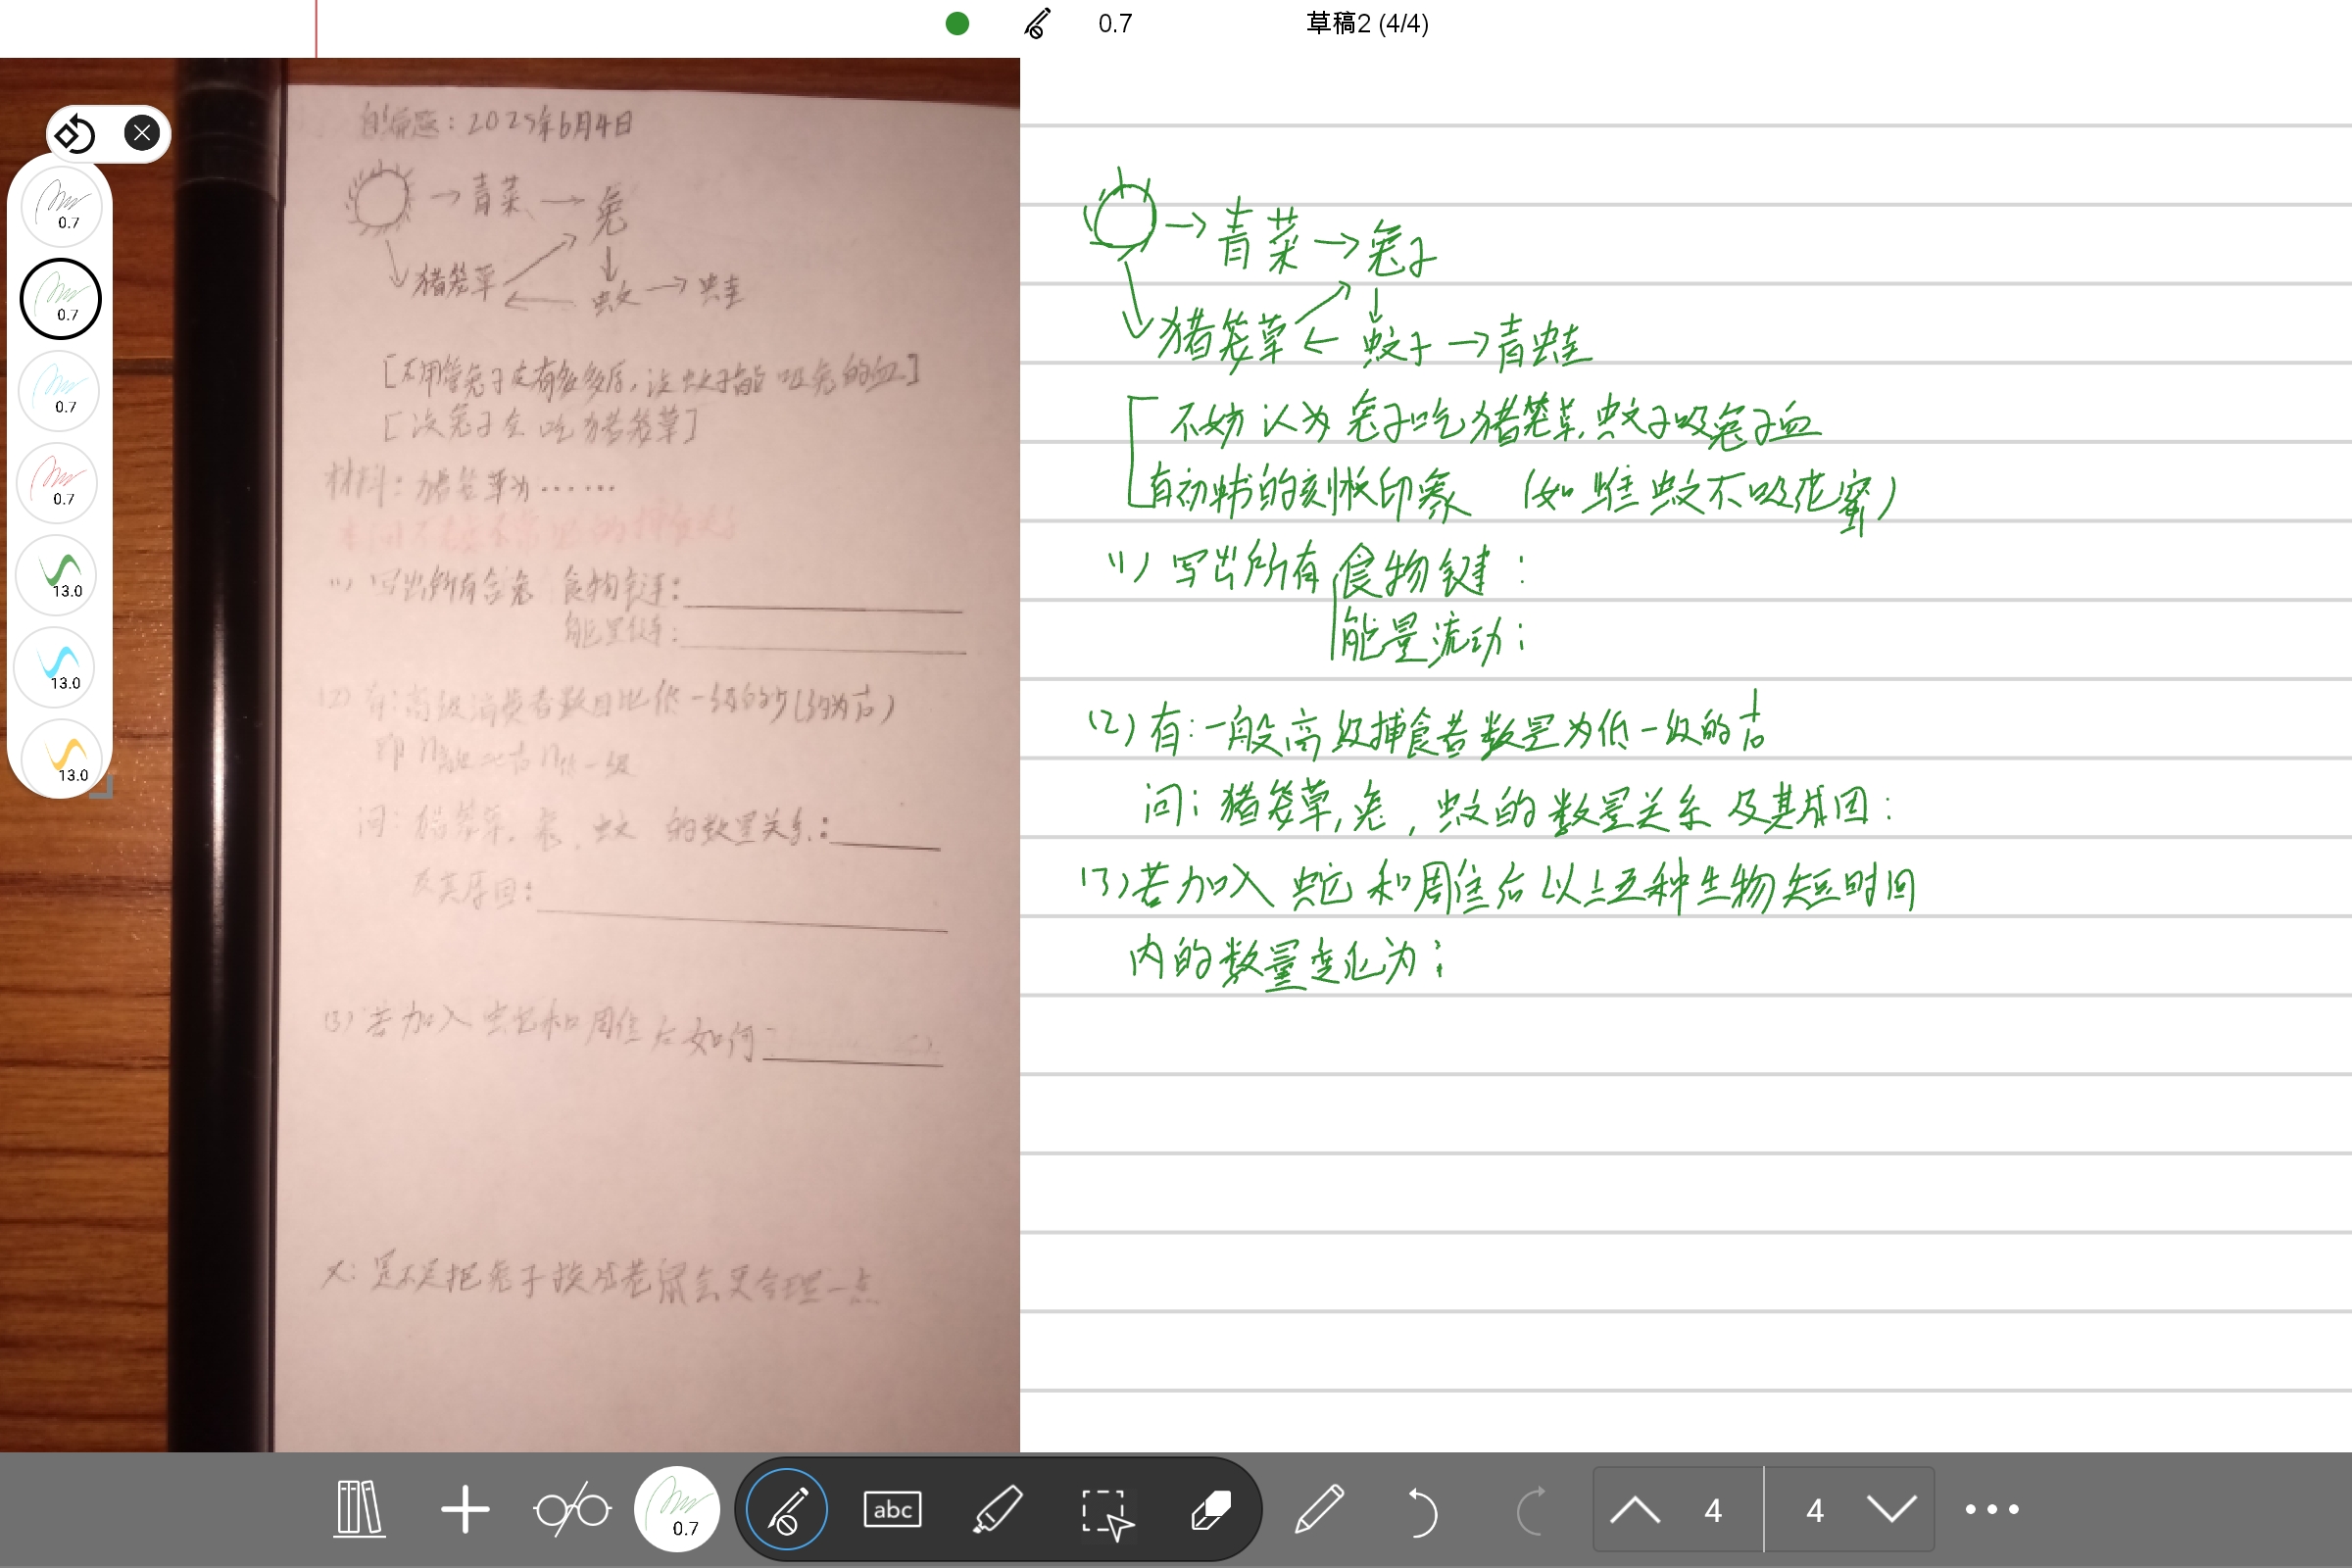 0.7
草稿2 (4/4)
0.7
0.7
0.7
0.7
13.0
13.0
13.0
自编题：2025年6月4日
→青菜→兔
↓猪笼草 ↗ ↓
← 蚊→蛙
[不用管兔子皮有多多厚,设蚊子能吸兔的血]
[设兔子会吃猪笼草]
材料：猪笼草为……
(1) 写出所有含兔 食物链：
能量链：
(2) 有：高级消费者数目比低一级的少(约为1/10)
问：猪笼草,兔,蚊 的数量关系：
及其原因：
(3) 若加入 蛇和周隹后如何
X：是不是把兔子换成老鼠会更合理一点
→青菜→兔子
↓猪笼草 ↗ ↓
← 蚊子→青蛙
不妨认为兔子吃猪笼草,蚊子吸兔子血
有初中的刻板印象 (如 雌蚊不吸花蜜)
(1) 写出所有 食物链：
能量流动：
(2) 有：一般高级捕食者数量为低一级的1/10
问：猪笼草,兔,蚊的数量关系及其成因：
(3) 若加入 蛇和周隹后以上五种生物短时间
内的数量变化为：
0.7
abc
4
4